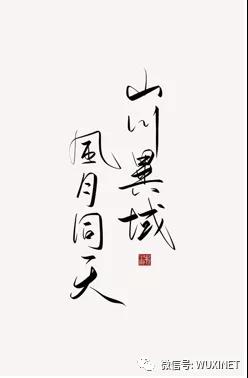 山川異域
風月同天
微信号: WUXINET